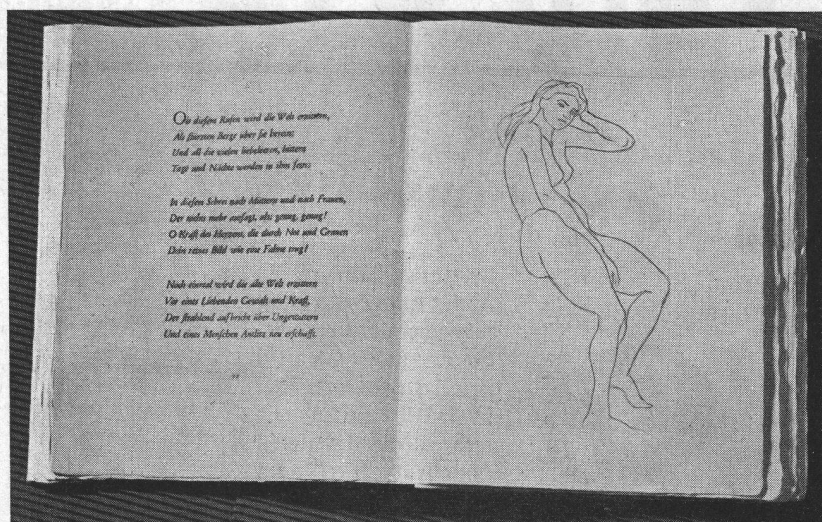 Ob diesen Rufen wird die Welt erzittern,
Als stürzten Berge über sie herein;
Und all die vielen liebeleeren, bittern
Tage und Nächte werden in ihm sein:
In diesem Schrei nach Müttern und nach Frauen,
Der nichts mehr aussagt, als: genug, genug!
O Kraft des Herzens, die durch Not und Grauen
Dein reines Bild wie eine Fahne trug!
Noch einmal wird die alte Welt erzittern
Vor eines Liebenden Gewalt und Kraft,
Der strahlend aufbricht über Ungewittern
Und eines Menschen Antlitz neu erschafft.